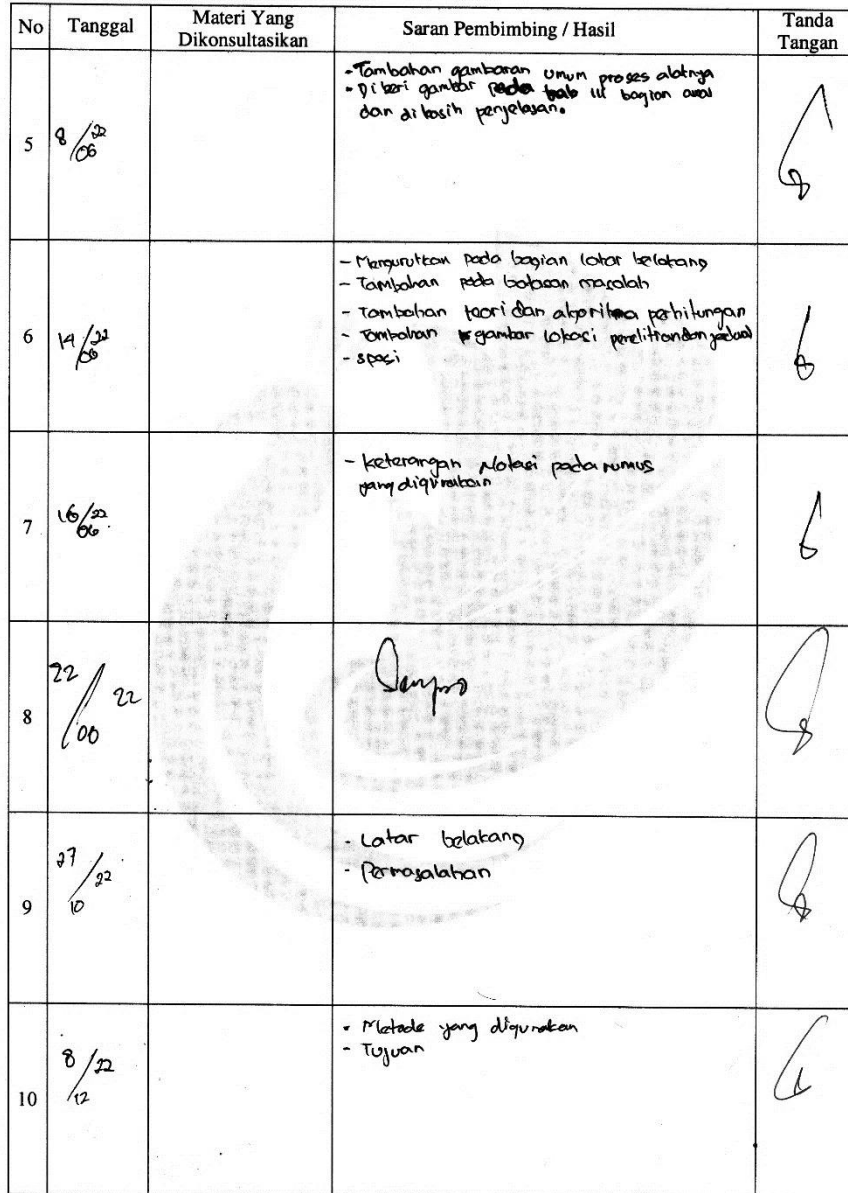 No Tanggal Materi Yang Dikonsultasikan Saran Pembimbing / Hasil Tanda Tangan
5 8/06 22
- Tambahan gambaran umum proses alatnya
- Diberi gambar pada bab III bagian awal
dan dikasih penjelasan.
6 14/06 22
- Mengurutkan pada bagian latar belakang
- Tambahan pada batasan masalah
- Tambahan teori dan algoritma perhitungan
- Tambahan gambar lokasi penelitian dan jadwal
- spasi
7 16/06 22
- Keterangan Notasi pada rumus
yang digunakan
8 22/06 22
Sempro
9 27/10 22
- Latar belakang
- Permasalahan
10 8/12 22
- Metode yang digunakan
- Tujuan